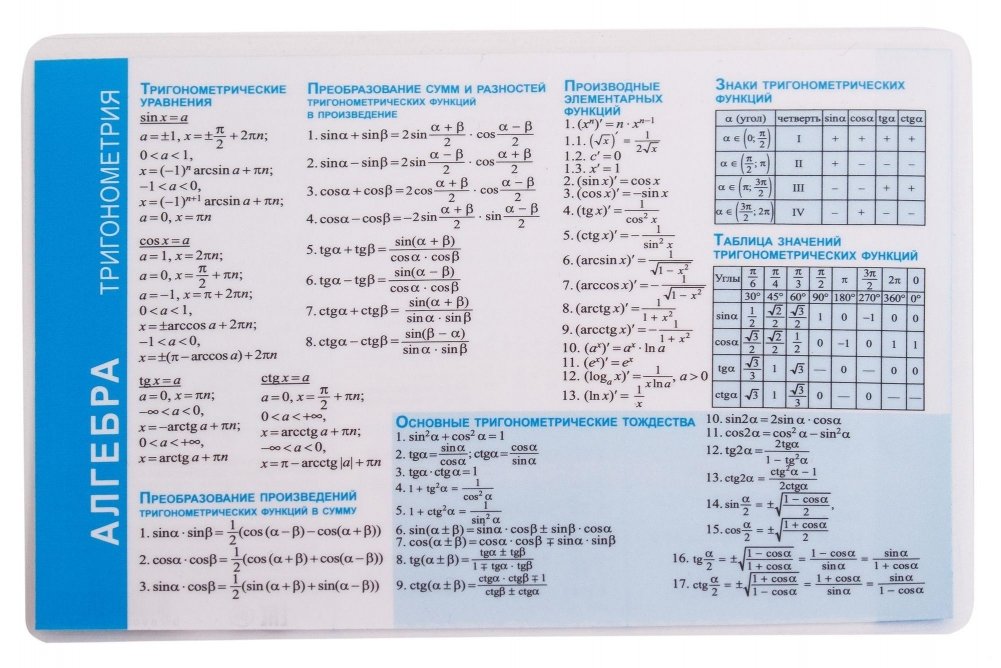 АЛГЕБРА ТРИГОНОМЕТРИЯ
ТРИГОНОМЕТРИЧЕСКИЕ
УРАВНЕНИЯ
sin x = a
a = ±1, x = ±π/2 + 2πn;
0 < a < 1,
x = (−1)ⁿ arcsin a + πn;
−1 < a < 0,
x = (−1)ⁿ⁺¹ arcsin a + πn;
a = 0, x = πn
cos x = a
a = 1, x = 2πn;
a = 0, x = π/2 + πn;
a = −1, x = π + 2πn;
0 < a < 1,
x = ±arccos a + 2πn;
−1 < a < 0,
x = ±(π − arccos a) + 2πn
tg x = a
a = 0, x = πn;
−∞ < a < 0,
x = −arctg a + πn;
0 < a < +∞,
x = arctg a + πn
ctg x = a
a = 0, x = π/2 + πn;
0 < a < +∞,
x = arcctg a + πn;
−∞ < a < 0,
x = π − arcctg |a| + πn
ПРЕОБРАЗОВАНИЕ ПРОИЗВЕДЕНИЙ
ТРИГОНОМЕТРИЧЕСКИХ ФУНКЦИЙ В СУММУ
1. sinα · sinβ = 1/2(cos(α − β) − cos(α + β))
2. cosα · cosβ = 1/2(cos(α + β) + cos(α − β))
3. sinα · cosβ = 1/2(sin(α + β) + sin(α − β))
ПРЕОБРАЗОВАНИЕ СУММ И РАЗНОСТЕЙ
ТРИГОНОМЕТРИЧЕСКИХ ФУНКЦИЙ
В ПРОИЗВЕДЕНИЕ
1. sinα + sinβ = 2sin (α + β)/2 · cos (α − β)/2
2. sinα − sinβ = 2sin (α − β)/2 · cos (α + β)/2
3. cosα + cosβ = 2cos (α + β)/2 · cos (α − β)/2
4. cosα − cosβ = −2sin (α + β)/2 · sin (α − β)/2
5. tgα + tgβ = sin(α + β)/(cosα · cosβ)
6. tgα − tgβ = sin(α − β)/(cosα · cosβ)
7. ctgα + ctgβ = sin(α + β)/(sinα · sinβ)
8. ctgα − ctgβ = sin(β − α)/(sinα · sinβ)
ПРОИЗВОДНЫЕ
ЭЛЕМЕНТАРНЫХ
ФУНКЦИЙ
1. (xⁿ)′ = n · xⁿ⁻¹
1.1. (√x)′ = 1/(2√x)
1.2. c′ = 0
1.3. x′ = 1
2. (sin x)′ = cos x
3. (cos x)′ = −sin x
4. (tg x)′ = 1/cos² x
5. (ctg x)′ = −1/sin² x
6. (arcsin x)′ = 1/√(1 − x²)
7. (arccos x)′ = −1/√(1 − x²)
8. (arctg x)′ = 1/(1 + x²)
9. (arcctg x)′ = −1/(1 + x²)
10. (aˣ)′ = aˣ · ln a
11. (eˣ)′ = eˣ
12. (logₐ x)′ = 1/(x ln a), a > 0
13. (ln x)′ = 1/x
ЗНАКИ ТРИГОНОМЕТРИЧЕСКИХ
ФУНКЦИЙ
α (угол) четверть sinα cosα tgα ctgα
α ∈ (0; π/2) I + + + +
α ∈ (π/2; π) II + − − −
α ∈ (π; 3π/2) III − − + +
α ∈ (3π/2; 2π) IV − + − −
ТАБЛИЦА ЗНАЧЕНИЙ
ТРИГОНОМЕТРИЧЕСКИХ ФУНКЦИЙ
Углы π/6 π/4 π/3 π/2 π 3π/2 2π 0
30° 45° 60° 90° 180° 270° 360° 0°
sinα 1/2 √2/2 √3/2 1 0 −1 0 0
cosα √3/2 √2/2 1/2 0 −1 0 1 1
tgα √3/3 1 √3 — 0 — 0 0
ctgα √3 1 √3/3 0 — 0 — —
ОСНОВНЫЕ ТРИГОНОМЕТРИЧЕСКИЕ ТОЖДЕСТВА
1. sin²α + cos²α = 1
2. tgα = sinα/cosα; ctgα = cosα/sinα
3. tgα · ctgα = 1
4. 1 + tg²α = 1/cos²α
5. 1 + ctg²α = 1/sin²α
6. sin(α ± β) = sinα · cosβ ± sinβ · cosα
7. cos(α ± β) = cosα · cosβ ∓ sinα · sinβ
8. tg(α ± β) = (tgα ± tgβ)/(1 ∓ tgα · tgβ)
9. ctg(α ± β) = (ctgα · ctgβ ∓ 1)/(ctgβ ± ctgα)
10. sin2α = 2sinα · cosα
11. cos2α = cos²α − sin²α
12. tg2α = 2tgα/(1 − tg²α)
13. ctg2α = (ctg²α − 1)/(2ctgα)
14. sin α/2 = ±√((1 − cosα)/2),
15. cos α/2 = ±√((1 + cosα)/2)
16. tg α/2 = ±√((1 − cosα)/(1 + cosα)) = (1 − cosα)/sinα = sinα/(1 + cosα)
17. ctg α/2 = ±√((1 + cosα)/(1 − cosα)) = (1 + cosα)/sinα = sinα/(1 − cosα)